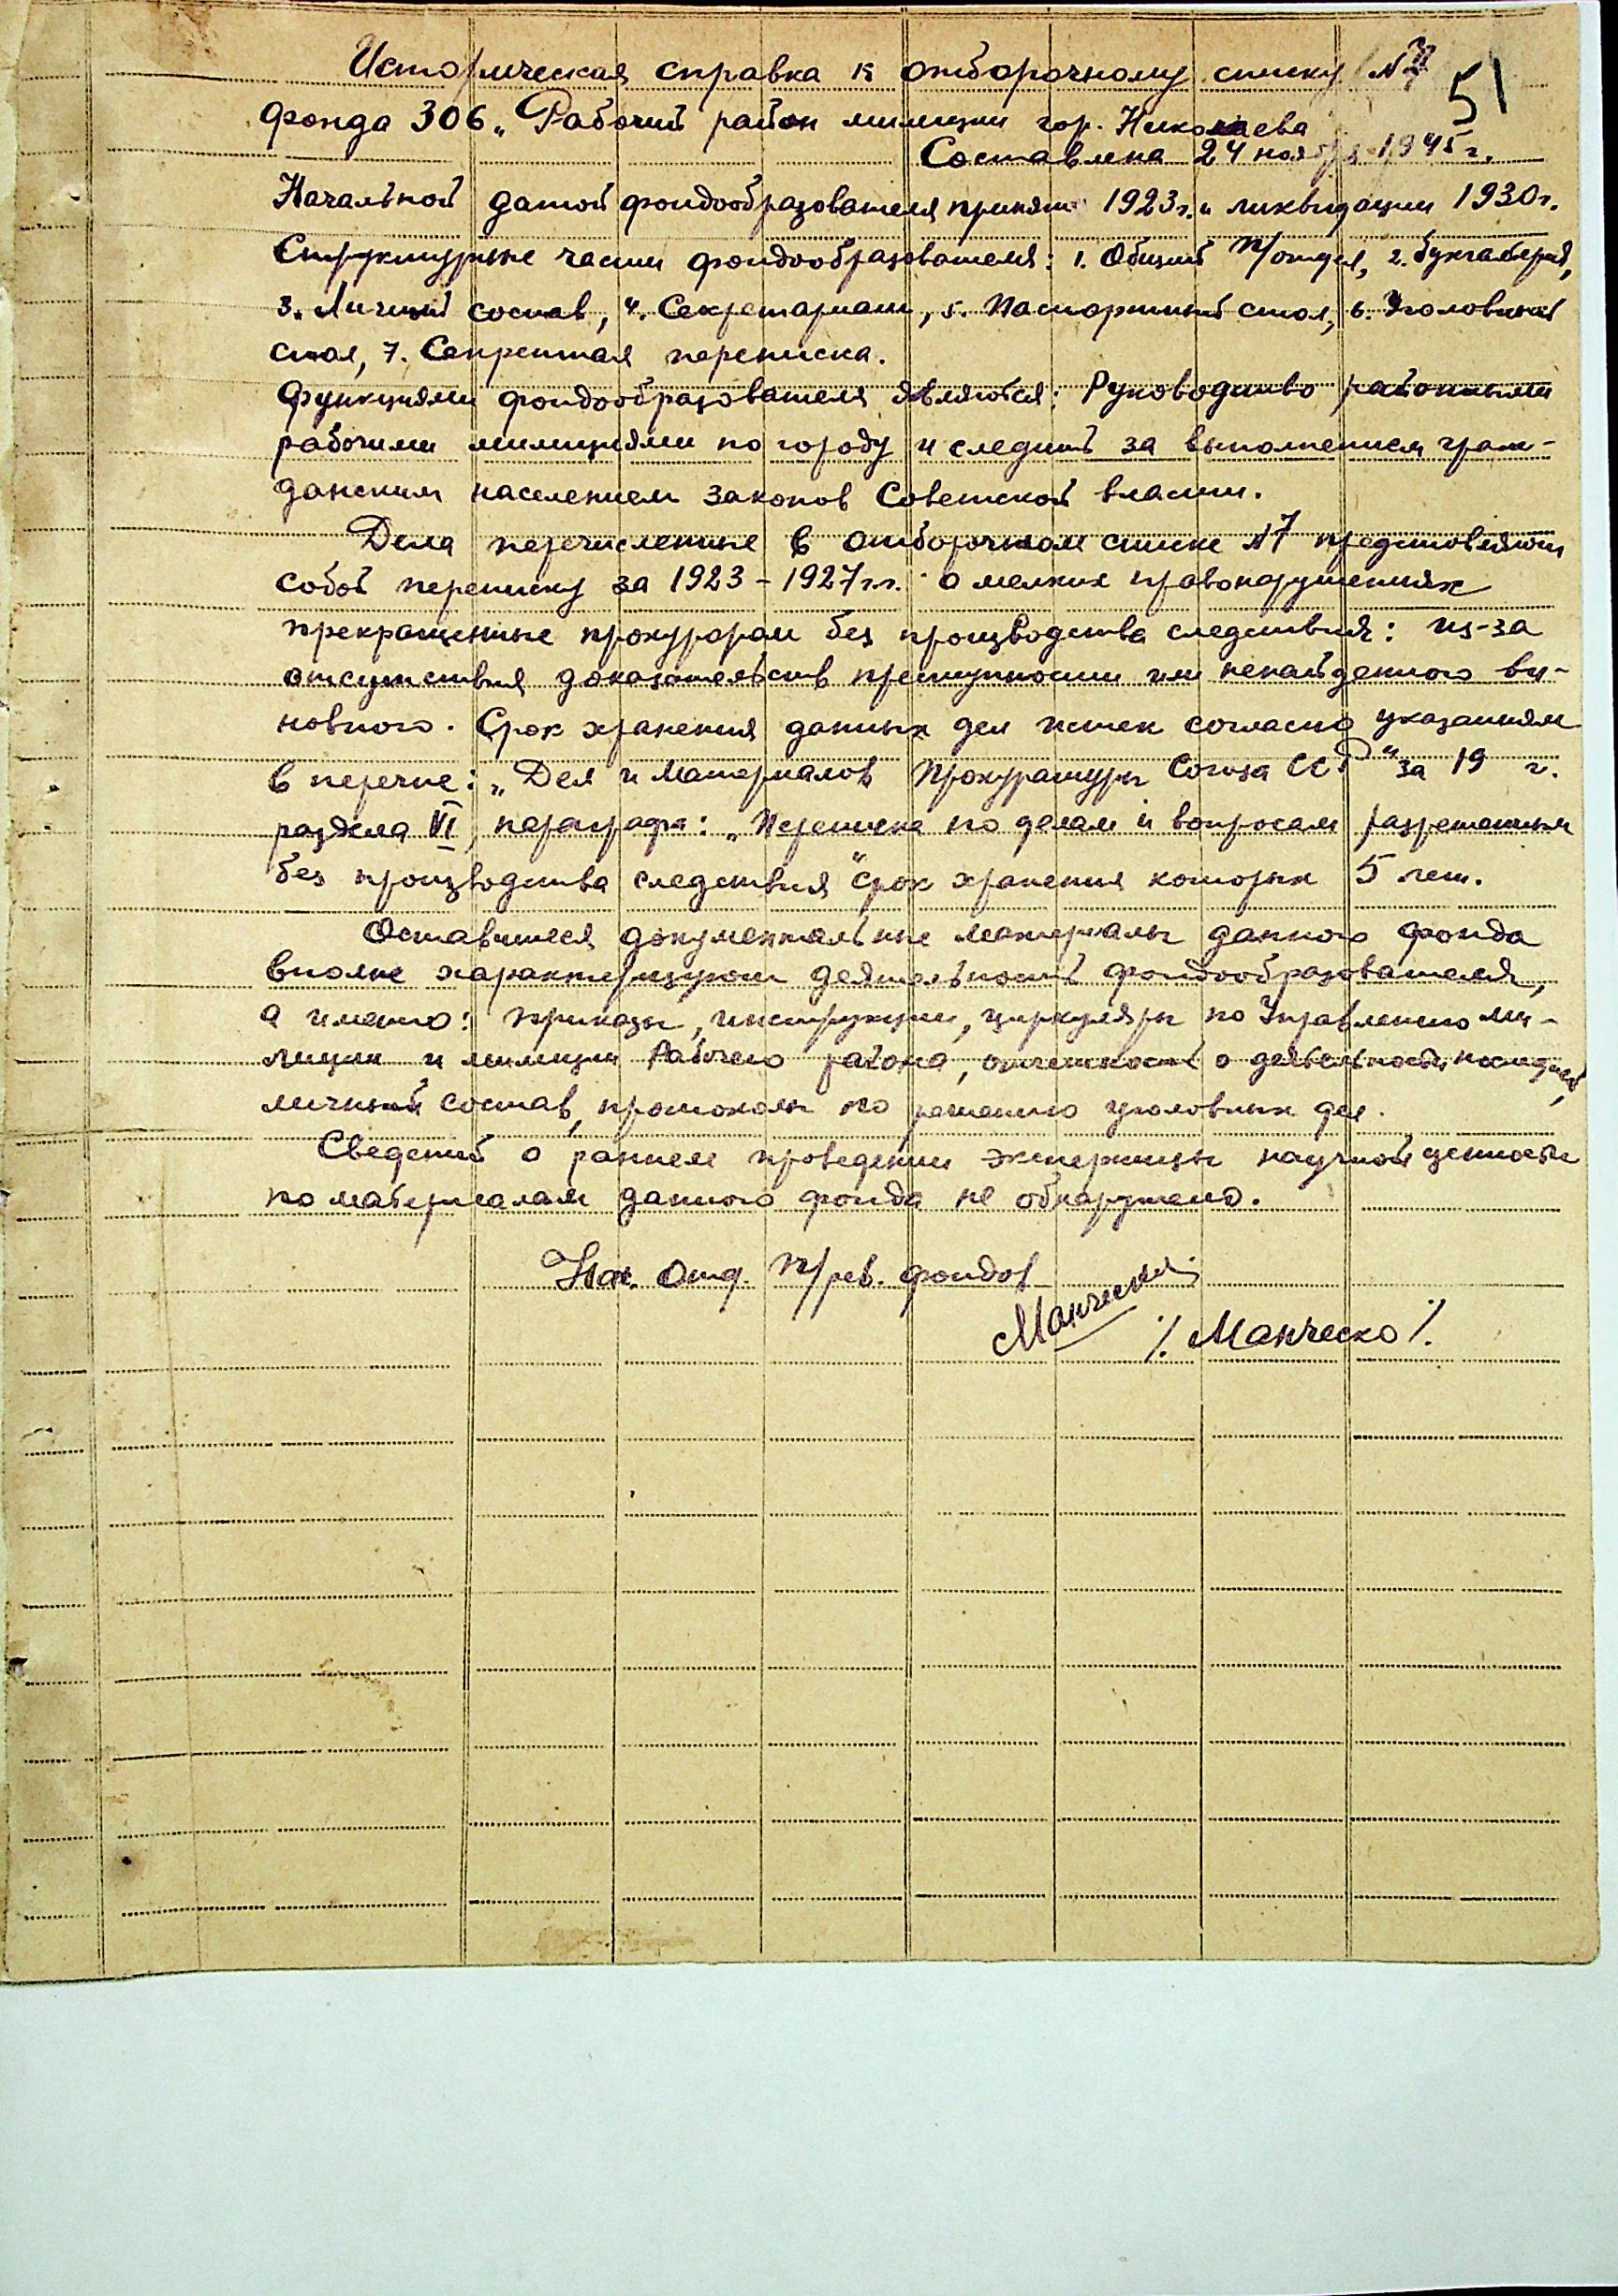 Историческая справка к отборочному списку №7
51
фонда 306 „Рабочий район милиции гор. Николаева
Составлена 24 ноября 1945 г.
Начальной датой фондообразователя принят 1923 г. и ликвидации 1930 г.
Структурные части фондообразователя: 1. Общий п/отдел, 2. Бухгалтерия,
3. Личный состав, 4. Секретариат, 5. Паспортный стол, 6. Уголовный
стол, 7. Секретная переписка.
Функциями фондообразователя являются: Руководство районными
рабочими милициями по городу и следить за выполнением граж-
данским населением законов Советской власти.
Дела перечисленные в отборочном списке №7 представляют
собой переписку за 1923 – 1927 г.г. о мелких правонарушениях
прекращенные прокурором без производства следствия: из-за
отсутствия доказательств преступности или ненайденного ви-
новного. Срок хранения данных дел истек согласно указаниям
в перечне: „Дел и материалов Прокуратуры Союза ССР“ за 19 г.
раздела VI, параграфа: „Переписка по делам и вопросам разрешенным
без производства следствия“ срок хранения которых 5 лет.
Оставшиеся документальные материалы данного фонда
вполне характеризуют деятельность фондообразователя,
а именно: приказы, инструкции, циркуляры по Управлению ми-
лиции и милиции Рабочего района, отчетность о деятельности
личный состав, протоколы по решению уголовных дел.
Сведений о раннем проведении экспертизы научной ценности
по материалам данного фонда не обнаружено.
Нач. Отд. п/рев. фондов
Манческо
/. Манческо /.